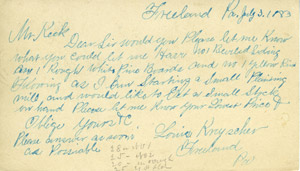 Freeland Pa, July 3. 1883
Mr. Keck
Dear Sir would you Please let me Know
What you Could let me Have No 1 Beveled Siding
Dry 1" Rough White Pine Boards and No 1 Yellow Pine
Flooring as I am Starting a Small Plaining
Mill and would like to Get a Small Stock
on hand Please let me Know Your Lowest Price &
Oblige Yours &C.
Please answer as soon
as Possiable
Louis
Freeland
Pa